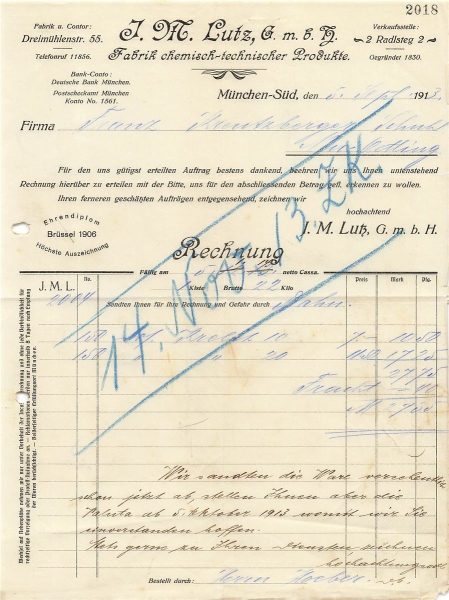 2018
Fabrik u. Contor:
Dreimühlenstr. 55.
Telefonruf 11856.
Bank-Conto:
Deutsche Bank München.
Postscheckamt München
Konto No. 1561.
J. M. Lutz, G. m. b. H.
Fabrik chemisch-technischer Produkte.
Verkaufsstelle:
2 Radlsteg 2
Gegründet 1830.
München-Süd, den 5. 1913.
Firma Franz Kreutzberger
Für den uns gütigst erteilten Auftrag bestens dankend, beehren wir uns Ihnen untenstehend
Rechnung hierüber zu erteilen mit der Bitte, uns für den abschliessenden Betrag gefl. erkennen zu wollen.
Ihren ferneren geschätzten Aufträgen entgegensehend, zeichnen wir
hochachtend
J. M. Lutz, G. m. b. H.
Ehrendiplom
Brüssel 1906
Höchste Auszeichnung
Rechnung
14. Nov. 13. ZK.
Fällig am netto Cassa.
J. M. L. No. Kiste Brutto 22 Kilo Preis Mark Pfg.
2004 Sandten Ihnen für Ihre Rechnung und Gefahr durch Bahn.
150 10 7.- 10 50
150 " 20 11.50 17 25
27 75
Fracht
M 27 05
Wir sandten die Ware versehentlich
schon jetzt ab, stellen Ihnen aber die
Valuta ab 5. Oktober 1913 womit wir Sie
einverstanden hoffen.
Stets gerne zu Ihren Diensten zeichnen
hochachtungsvoll
Bestellt durch: Herrn Hoeber. d.b.